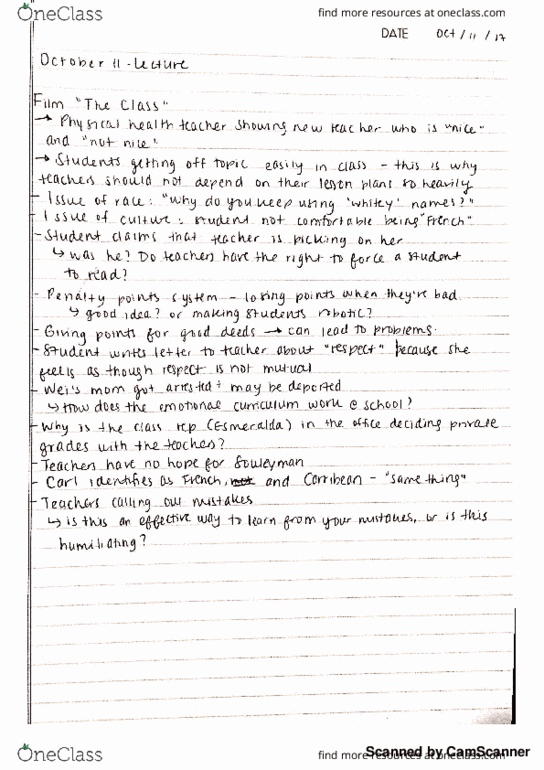 OneClass
find more resources at oneclass.com
DATE Oct / 11 / 17
October 11 - Lecture
Film "The Class"
→ Physical health teacher showing new teacher who is "nice"
and "not nice"
→ Students getting off topic easily in class - this is why
teachers should not depend on their lesson plans so heavily
- Issue of race: "why do you keep using 'whitey' names?"
- Issue of culture: student not comfortable being "French"
- Student claims that teacher is picking on her
↳ was he? Do teachers have the right to force a student
to read?
- Penalty points system - losing points when they're bad
↳ good idea? or making students robotic?
- Giving points for good deeds → can lead to problems.
- Student writes letter to teacher about "respect" because she
feels as though respect is not mutual
- Wei's mom got arrested + may be deported
↳ How does the emotional curriculum work @ school?
- Why is the class rep (Esmeralda) in the office deciding private
grades with the teachers?
- Teachers have no hope for Souleyman
- Carl identifies as French, and Carribean - "same thing"
- Teachers calling out mistakes
↳ is this an effective way to learn from your mistakes, or is this
humiliating?
OneClass
find more resources at oneclass.com
Scanned by CamScanner